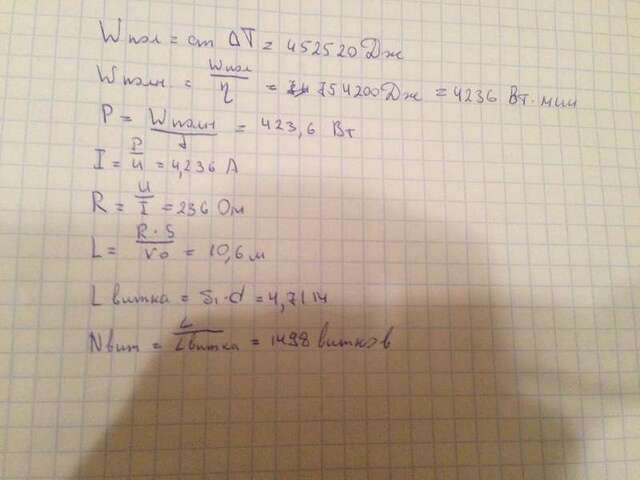 Wпол = cm ΔT = 452520 Дж
Wполн = Wпол/η = 754200 Дж = 4236 Вт·мин
P = Wполн/t = 423,6 Вт
I = P/U = 4,236 А
R = U/I = 236 Ом
L = R·S/ro = 10,6 м
L витка = S₁·d = 4,7114
Nвит = L/Lвитка = 1498 витков